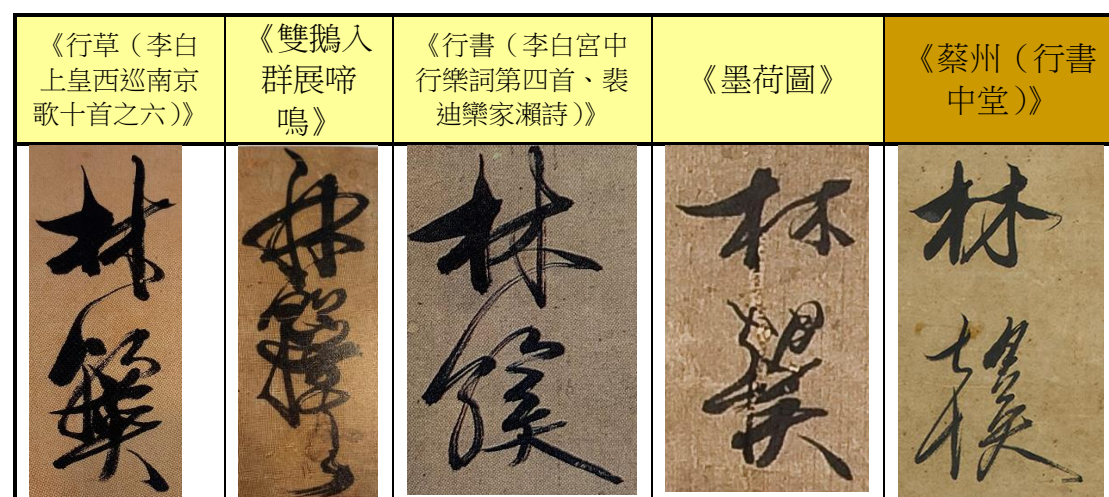 《行草（李白
上皇西巡南京
歌十首之六）》
《雙鵝入
群展啼
鳴》
《行書（李白宮中
行樂詞第四首、裴
迪欒家瀨詩）》
《墨荷圖》
《蔡州（行書
中堂）》
林
林
林
林
林